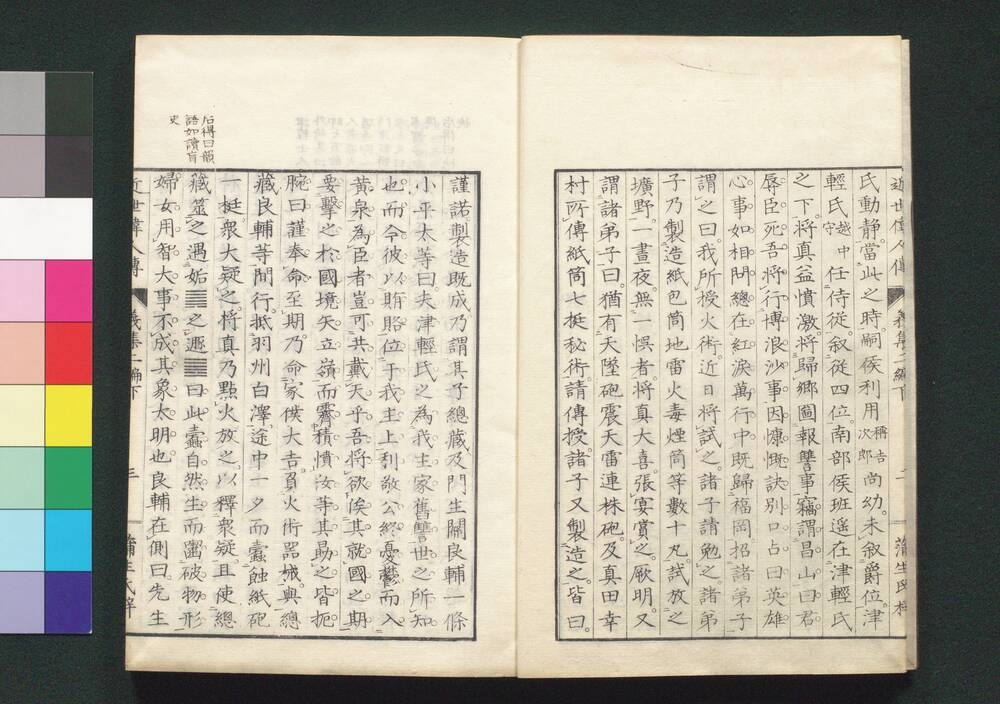 近世偉人傳 義集二編下 二 蒲生氏梓
氏動静當此之時嗣侯利用稱吉次郎尚幼未叙爵位津
輕氏越中守任侍從叙從四位南部侯班遥在津輕氏
之下將真益憤激將歸鄉圖報讐事竊謂昌山曰君
辱臣死吾將行博浪沙事因慷慨訣別口占曰英雄
心事如相問總在紅淚萬行中既歸福岡招諸弟子
謂之曰我所授火術近日將試之諸子請勉之諸弟
子乃製造紙包筒地雷火毒煙筒等數十凡試放之
壙野一晝夜無一悞者將真大喜張宴賞之厥明又
謂諸弟子曰猶有天墜砲震天雷連株砲及真田幸
村所傳紙筒七挺秘術請傳授諸子又製造之皆曰
謹諾製造既成乃謂其子總藏及門生關良輔一條
小平太等曰夫津輕氏之為我主家舊讐世之所知
也而今彼以賄賂位于我主上利敬公終憂鬱而入
黄泉為臣者豈可共戴天乎吾將欲俟其就國之期
要擊之於國境矢立嶺而霽積憤汝等其勗之皆扼
腕曰謹奉命至期乃命家僕大吉負火術器械與總
藏良輔等間行抵羽州白澤途中一夕而蠹蝕紙砲
一挺衆大疑之將真乃點火放之以釋衆疑且使總
藏筮之遇姤䷫之遯䷠曰此蠹自然生而齧破物形
婦女用智大事不成其象太明也良輔在側曰先生
近世偉人傳 義集二編下 三 蒲生氏梓
石得曰韻
語如讀盲
史